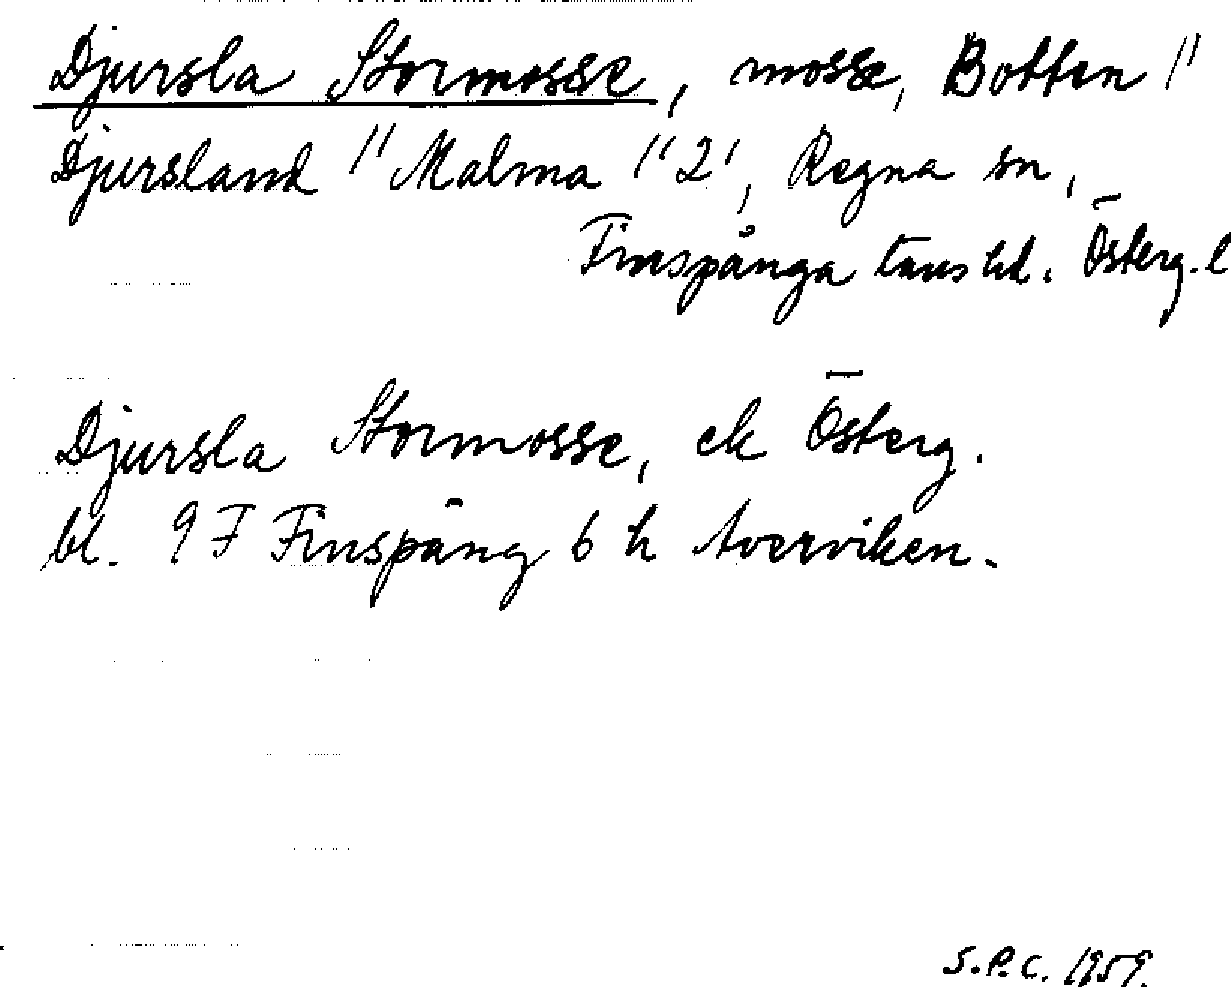 Djursla Stormosse, mosse, Botten //
Djursland // Malma // 2/, Regna sn,
Finspånga läns hd. Österg. l
Djursla Stormosse, ek Österg.
bl. 9 F Finspång 6 h Averviken.
S.P.C. 1959.